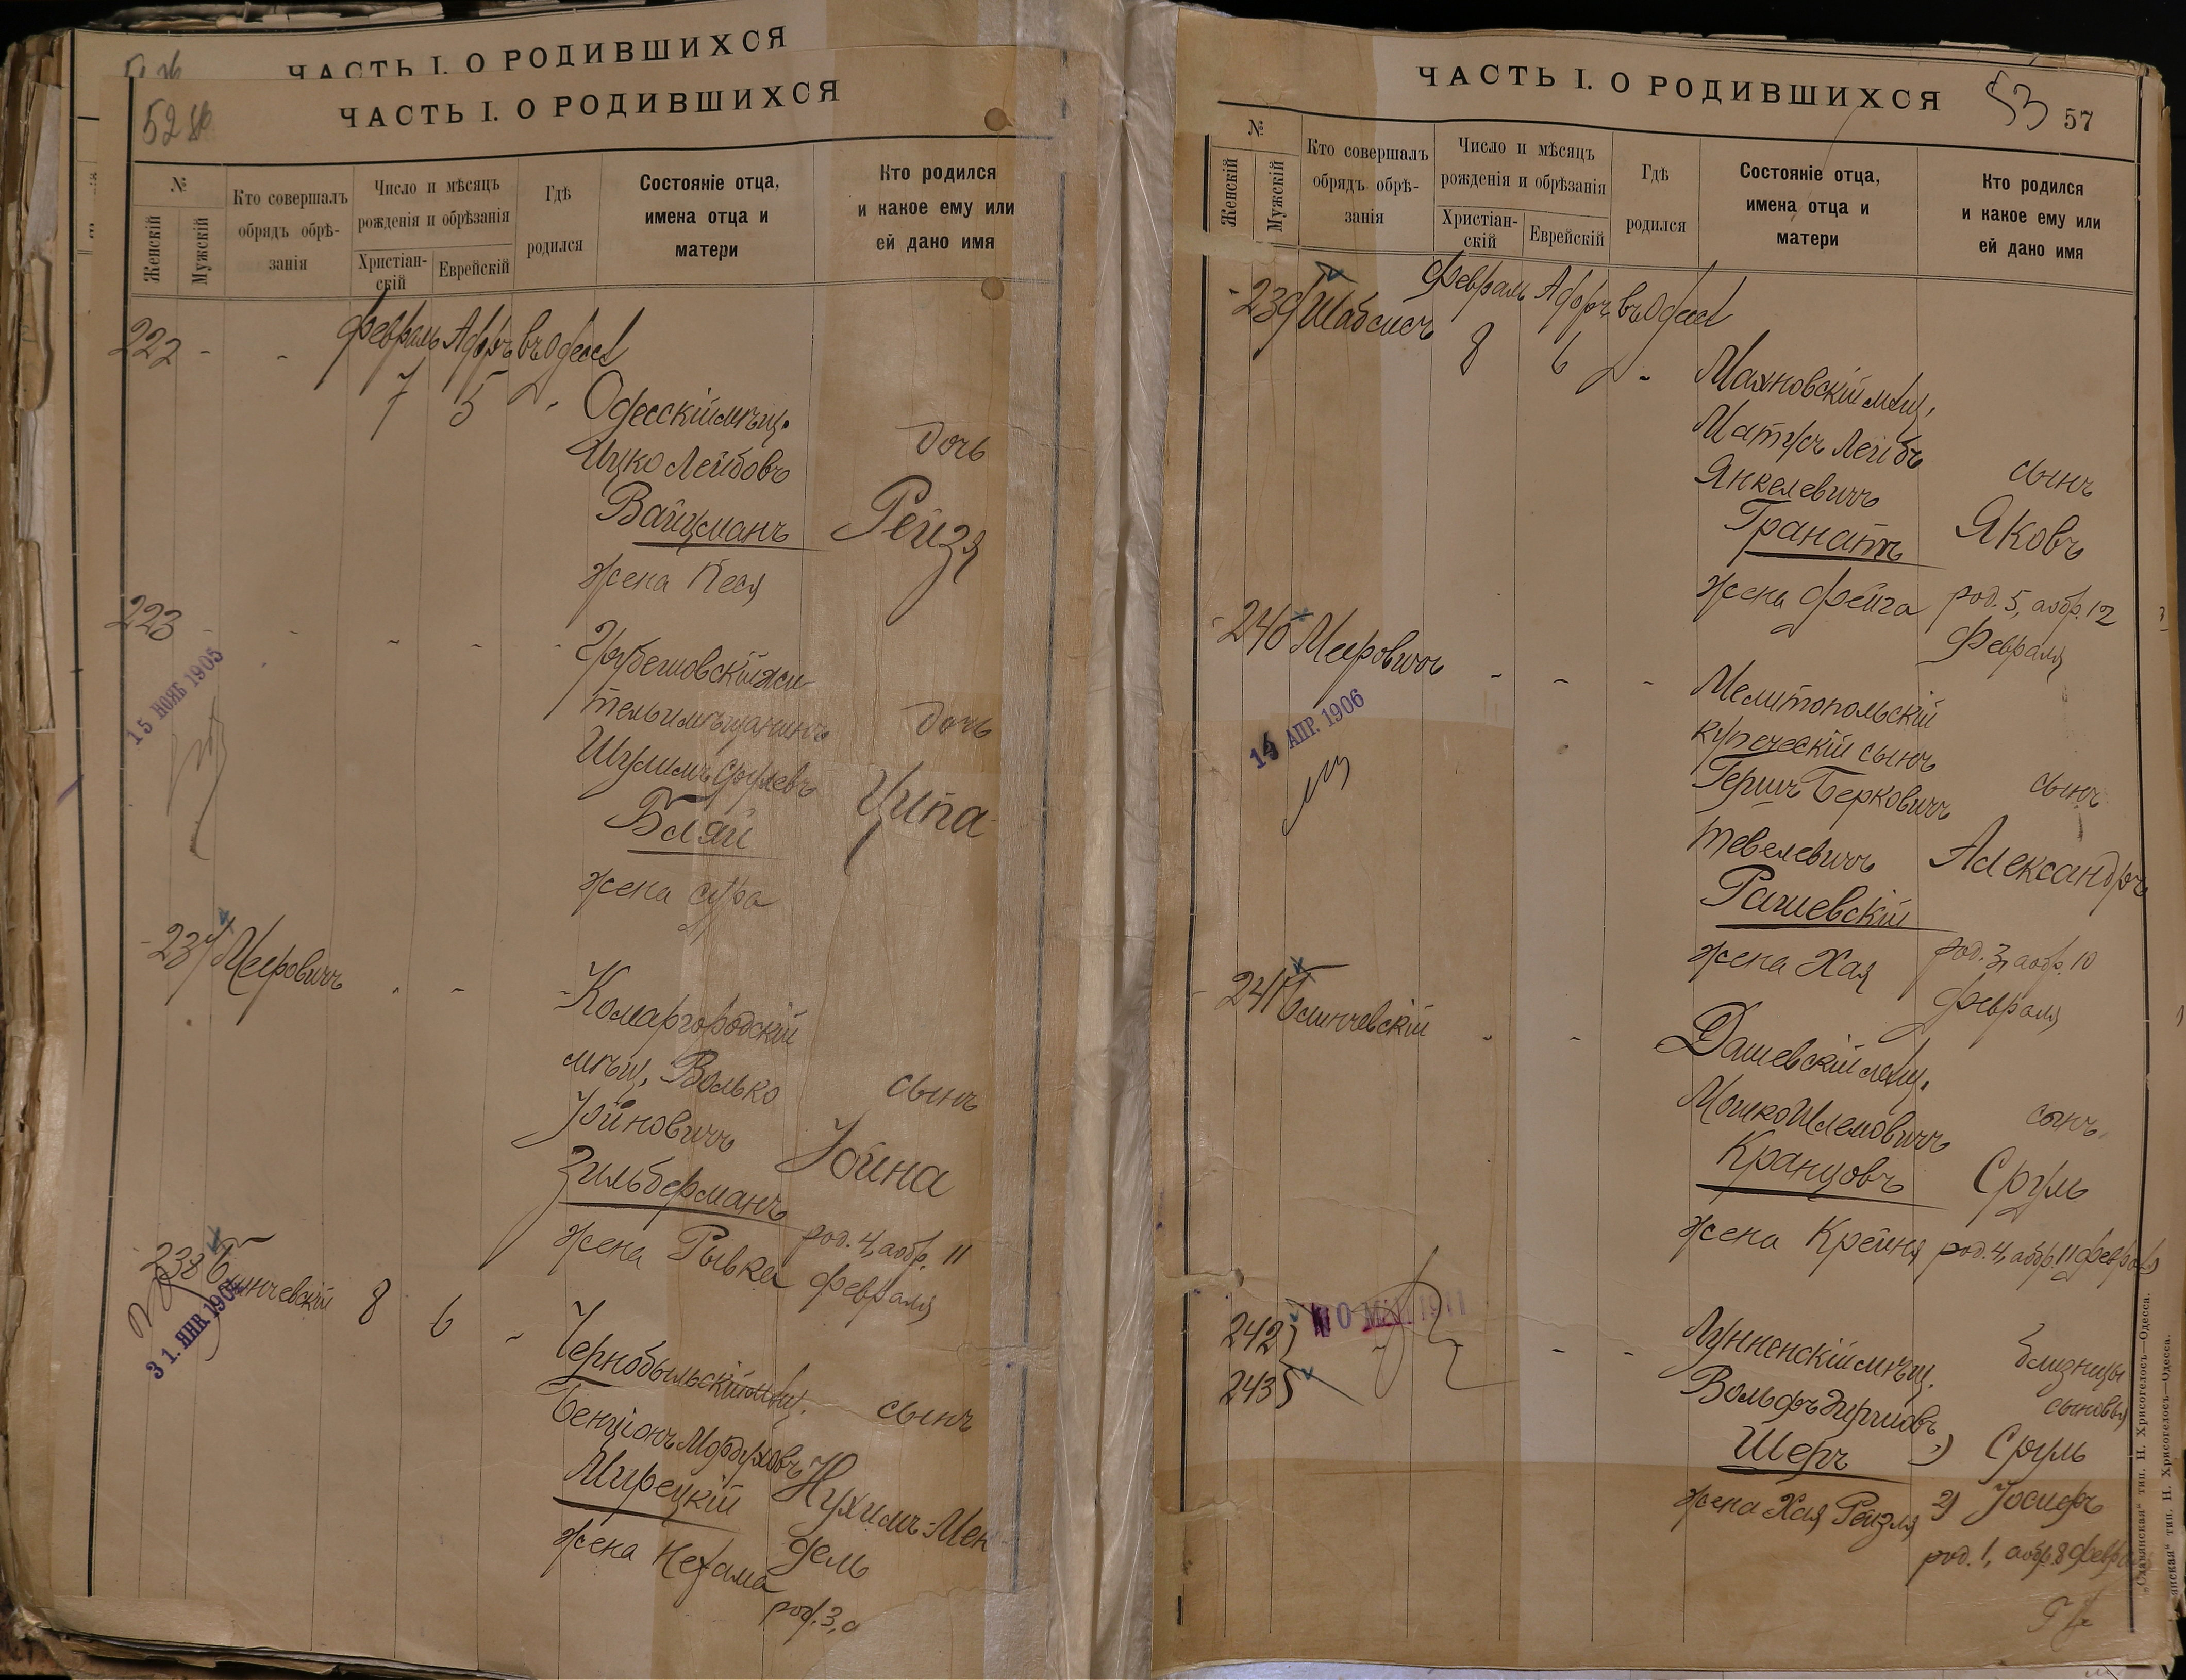 ЧАСТЬ I. О РОДИВШИХСЯ
ЧАСТЬ I. О РОДИВШИХСЯ
52
№
Женскій
Мужскій
Кто совершалъ
обрядъ обрѣ-
занія
Число и мѣсяцъ
рожденія и обрѣзанія
Христіан-
скій
Еврейскій
Гдѣ
родился
Состояніе отца,
имена отца и
матери
Кто родился
и какое ему или
ей дано имя
222 - - февраль Адаръ въ Одессѣ
7 5
Одесскій мѣщ.
Ицко Лейбовъ
Вайцманъ
жена Кеся
дочь
Рейзя
223
15 НОЯБ 1905
Грубешовскій жи
тель мѣщанинъ
Шулимъ Срулевъ
Бляй
жена Сура
дочь
Ципа
237 Меировичъ
Комаргородскій
мѣщ. Волько
Іойновичъ
Зильберманъ
жена Рывка
сынъ
Іойна
род. 4, аобр. 11
февраля
238 Блинчевскій 8 6
31. ЯНВ 190
Чернобыльскій мѣщ.
Бенціонъ Мордуховъ
Мирецкій
жена Нехама
сынъ
Нухимъ-Мен
дель
род. 3, а
ЧАСТЬ I. О РОДИВШИХСЯ
53
57
№
Женскій
Мужскій
Кто совершалъ
обрядъ обрѣ-
занія
Число и мѣсяцъ
рожденія и обрѣзанія
Христіан-
скій
Еврейскій
Гдѣ
родился
Состояніе отца,
имена отца и
матери
Кто родился
и какое ему или
ей дано имя
239 Шабсисъ февраль Адаръ въ Одессѣ
8 6
Махновскій мѣщ.
Матусъ Лейбъ
Янкелевичъ
Гранатъ
жена Фейга
сынъ
Яковъ
род. 5, аобр. 12
февраля
240 Меировичъ
АПР. 1906
Мелитопольскій
купеческій сынъ
Гершъ Берковичъ
Тевелевичъ
Рашевскій
жена Хая
сынъ
Александръ
род. 3, аобр. 10
февраля
241 Блинчевскій
Дашевскій мѣщ.
Мошко Шлемовичъ
Кранцовъ
жена Крейня
сынъ
Сруль
род. 4, аобр. 11 февраля
242
243
10 МАЙ 1911
Лунненскій мѣщ.
Вольфъ Гиршовъ
Шеръ
жена Хая Рейзля
близнецы
сыновья
1) Сруль
2) Іосифъ
род. 1, аобр. 8 февр
„Славянская“ тип. Н. Хрисогелосъ—Одесса.
янская“ тип. Н. Хрисогелосъ—Одесса.